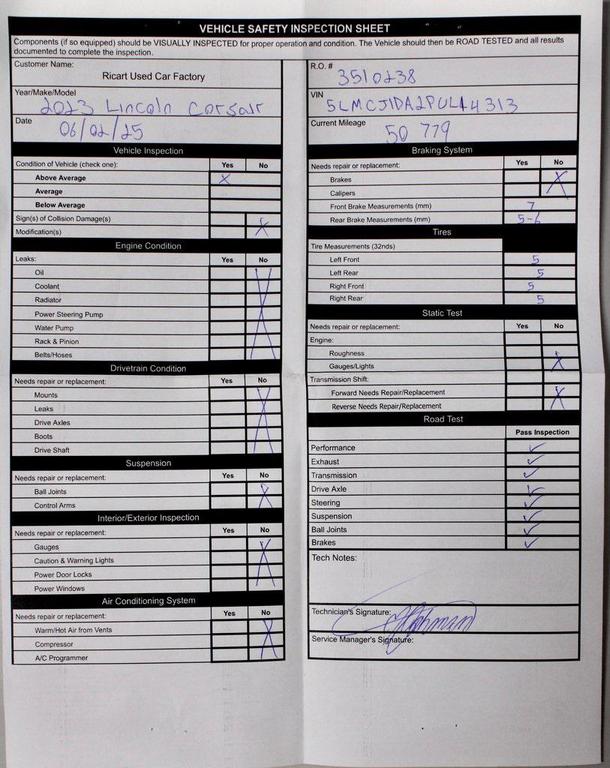 VEHICLE SAFETY INSPECTION SHEET
Components (if so equipped) should be VISUALLY INSPECTED for proper operation and condition. The Vehicle should then be ROAD TESTED and all results
documented to complete the inspection.
Customer Name:
Ricart Used Car Factory
Year/Make/Model
2023 Lincoln Corsair
Date
06/02/25
Vehicle Inspection
Condition of Vehicle (check one): Yes No
Above Average X
Average
Below Average
Sign(s) of Collision Damage(s)
Modification(s)
Engine Condition
Leaks: Yes No
Oil
Coolant
Radiator
Power Steering Pump
Water Pump
Rack & Pinion
Belts/Hoses
Drivetrain Condition
Needs repair or replacement: Yes No
Mounts
Leaks
Drive Axles
Boots
Drive Shaft
Suspension
Needs repair or replacement: Yes No
Ball Joints
Control Arms
Interior/Exterior Inspection
Needs repair or replacement: Yes No
Gauges
Caution & Warning Lights
Power Door Locks
Power Windows
Air Conditioning System
Needs repair or replacement: Yes No
Warm/Hot Air from Vents
Compressor
A/C Programmer
R.O. #
3510238
VIN
5LMCJ1DA2PUL44313
Current Mileage
50 779
Braking System
Needs repair or replacement: Yes No
Brakes
Calipers
Front Brake Measurements (mm) 7
Rear Brake Measurements (mm) 5-6
Tires
Tire Measurements (32nds)
Left Front 5
Left Rear 5
Right Front 5
Right Rear 5
Static Test
Needs repair or replacement: Yes No
Engine:
Roughness
Gauges/Lights
Transmission Shift:
Forward Needs Repair/Replacement
Reverse Needs Repair/Replacement
Road Test
Pass Inspection
Performance
Exhaust
Transmission
Drive Axle
Steering
Suspension
Ball Joints
Brakes
Tech Notes:
Technician's Signature:
Service Manager's Signature: